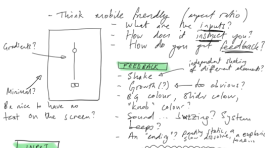 - Think mobile friendly (aspect ratio)
- What are the inputs?
- How does it instruct you?
- How do you get feedback?
Gradient?
Minimal?
Be nice to have no
text on the screen?
FEEDBACK
- Shake
independent shaking
of different elements?
- Growth(?) too obvious?
- BG colour, slider colour,
"knob" colour?
- Sound... Buzzing? System
beeps?
- An "ending"?
INPUT